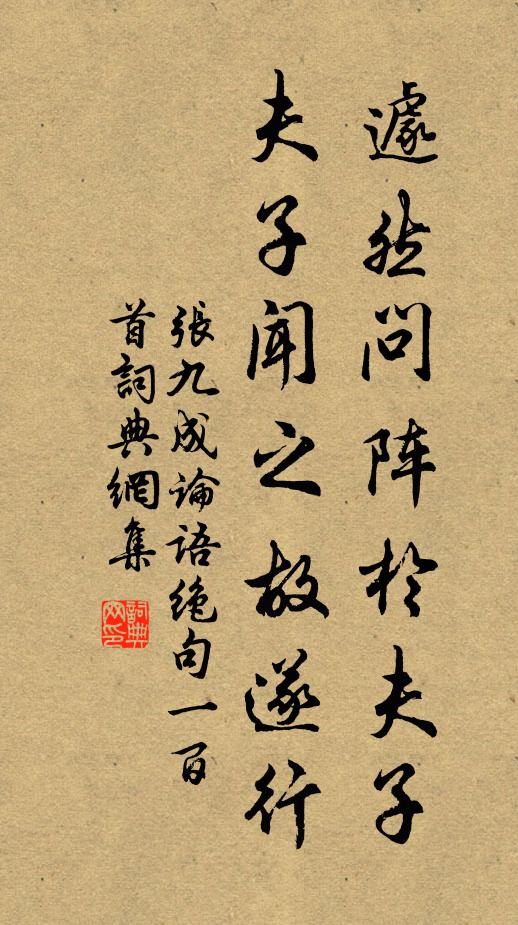 遽然问阵於夫子
夫子闻之故遂行
張九成论语绝句一百
首詞典網集
詞典网印